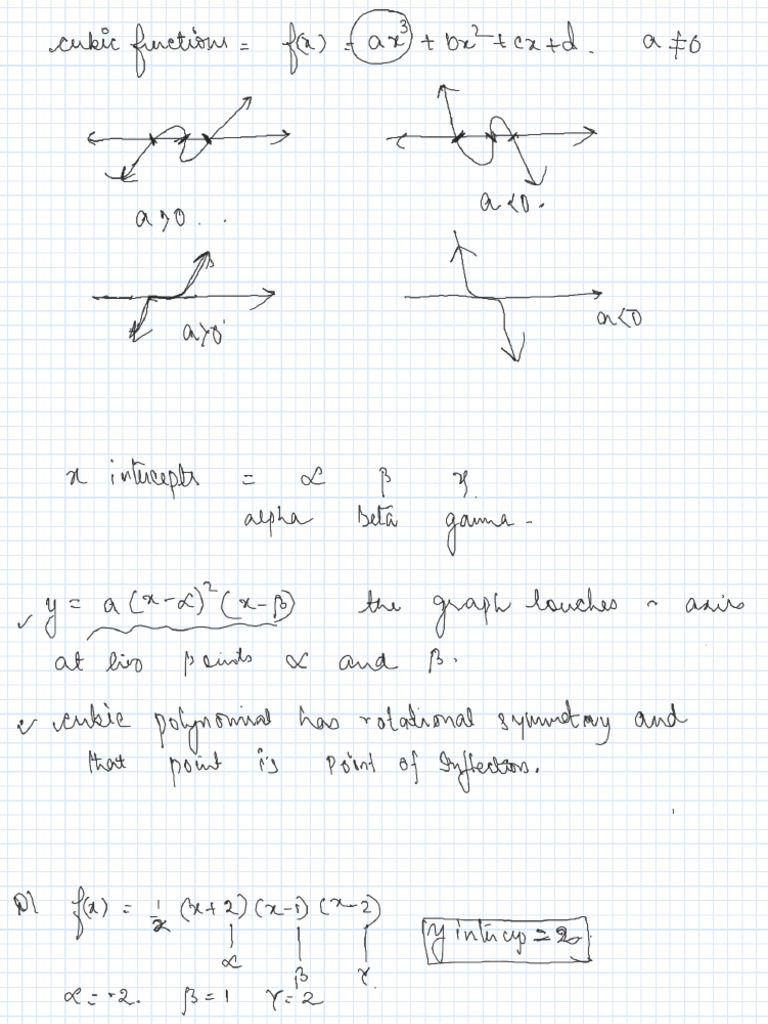 cubic functions = f(x) = ax³ + bx² + cx + d. a ≠ 0
a > 0. a < 0.
a > 0 a < 0
x intercepts = α β γ
alpha beta gamma.
✓ y = a(x-α)²(x-β) the graph touches x axis
at two points α and β.
✓ cubic polynomial has rotational symmetry and
that point is point of inflection.
f(x) = 1/2 (x+2)(x-1)(x-2) y intercep = 2
α β γ
α = -2. β = 1 γ = 2